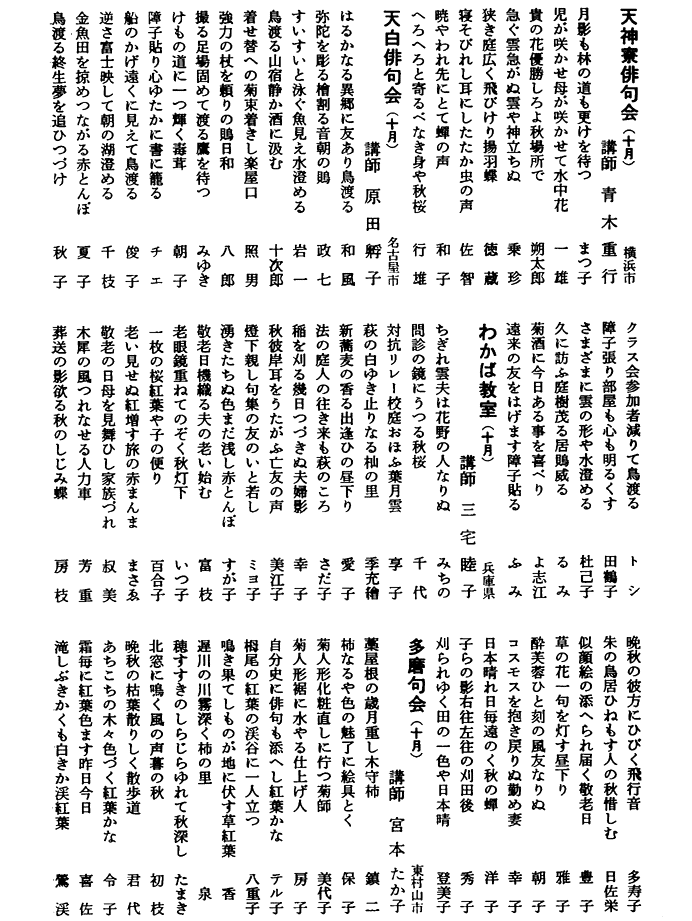 天神寮俳句会（十月）
講師 青木重行 横浜市
月影も林の道も更けを待つ まつ子
児が咲かせ母が咲かせて水中花 一雄
貴の花優勝しろよ秋場所で 朔太郎
急ぐ雲急がぬ雲や神立ちぬ 乗珍
狭き庭広く飛びけり揚羽蝶 徳蔵
寝そびれし耳にしたたか虫の声 佐智
暁やわれ先にとて蟬の声 和子
へろへろと寄るべなき身や秋桜 行雄
天白俳句会（十月）
講師 原田孵子 名古屋市
はるかなる異郷に友あり鳥渡る 和風
弥陀を彫る檜割る音朝の鵙 政七
すいすいと泳ぐ魚見え水澄める 岩一
鳥渡る山宿静か酒に汲む 十次郎
着せ替への菊束着きし楽屋口 照男
強力の杖を頼りの鵙日和 八郎
撮る足場固めて渡る鷹を待つ みゆき
けもの道に一つ輝く毒茸 朝子
障子貼り心ゆたかに書に籠る チエ
船のかげ遠くに見えて鳥渡る 俊子
逆さ富士映して朝の湖澄める 千枝
金魚田を掠めつながる赤とんぼ 夏子
鳥渡る終生夢を追ひつづけ 秋子
クラス会参加者減りて鳥渡る トシ
障子張り部屋も心も明るくす 田鶴子
さまざまに雲の形や水澄める 杜己子
久に訪ふ庭樹茂る居鵙威る るみ
菊酒に今日ある事を喜べり よ志江
遠来の友をはげます障子貼る ふみ
わかば教室（十月）
講師 三宅睦子 兵庫県
ちぎれ雲夫は花野の人なりぬ みちの
問診の鏡にうつる秋桜 千代
対抗リレー校庭おほふ葉月雲 享子
萩の白ゆき止りなる杣の里 季充繪
新蕎麦の香る出逢ひの昼下り 愛子
法の庭人の往き来も萩のころ さだ子
稲を刈る幾日つづきぬ夫婦影 幸子
秋彼岸耳をうたがふ亡友の声 美江子
燈下親し句集の友のいと若し ミヨ子
湧きたちぬ色まだ浅し赤とんぼ すが子
敬老日機織る夫の老い始む 富枝
老眼鏡重ねてのぞく秋灯下 いつ子
一枚の桜紅葉や子の便り 百合子
老い見せぬ紅増す旅の赤まんま まさゑ
敬老の日母を見舞ひし家族づれ 叔美
木犀の風つれなせる人力車 芳重
葬送の影欲る秋のしじみ蝶 房枝
晩秋の彼方にひびく飛行音 多寿子
朱の鳥居ひねもす人の秋惜しむ 日佐栄
似顔絵の添へられ届く敬老日 豊子
草の花一句を灯す昼下り 雅子
酔芙蓉ひと刻の風友なりぬ 朝子
コスモスを抱き戻りぬ勤め妻 幸子
日本晴れ日毎遠のく秋の蟬 洋子
子らの影右往左往の刈田後 秀子
刈られゆく田の一色や日本晴 登美子
多磨句会（十月）
講師 宮本たか子 東村山市
藁屋根の歳月重し木守柿 鎮二
柿なるや色の魅了に絵具とく 保子
菊人形化粧直しに佇つ菊師 美代子
菊人形裾に水やる仕上げ人 房子
自分史に俳句も添へし紅葉かな テル子
栂尾の紅葉の渓谷に一人立つ 八重子
鳴き果てしものが地に伏す草紅葉 香
遅川の川霧深く柿の里 泉
穂すすきのしらじらゆれて秋深し たまき
北窓に鳴く風の声暮の秋 初枝
晩秋の枯葉散りしく散歩道 君代
あちこちの木々色づく紅葉かな 令子
霜毎に紅葉色ます昨日今日 喜佐
滝しぶきかくも白きか渓紅葉 鶯渓